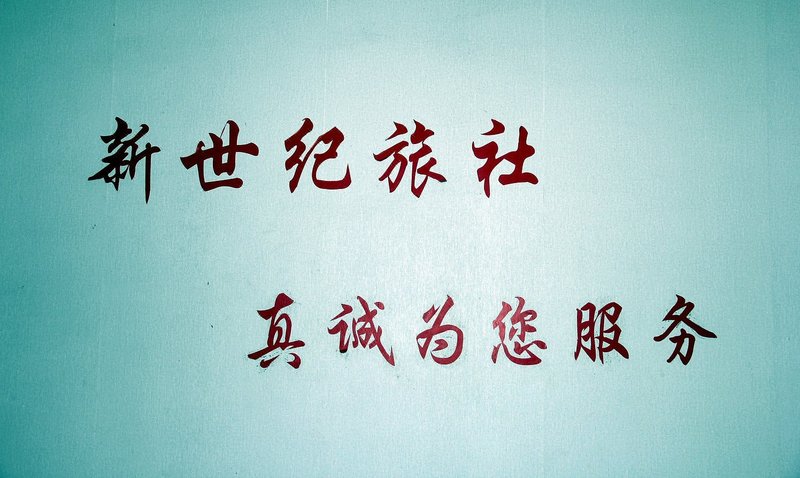 新世纪旅社
真诚为您服务